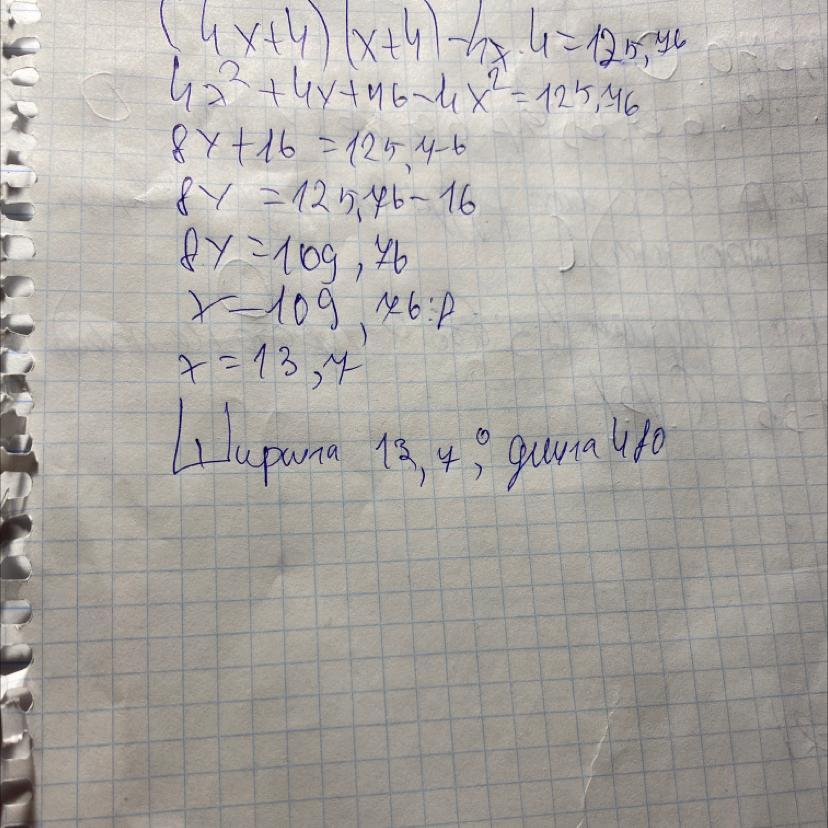 (4x+4)(x+4)-4x·4=125,76
4x²+4x+16-4x²=125,76
8x+16=125,76
8x=125,76-16
8x=109,76
x-109,76:8
x=13,7
Ширина 13,7; длина